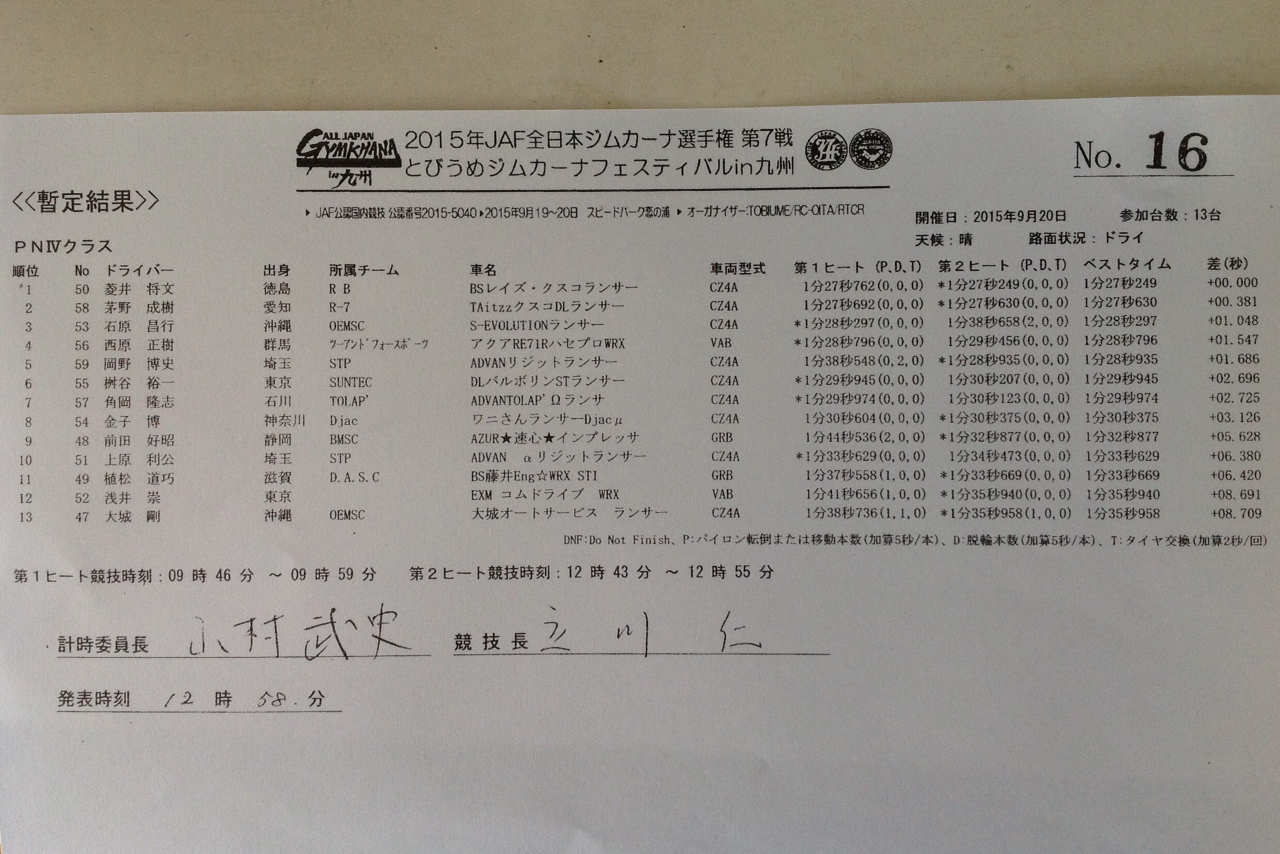 ALL JAPAN GYMKHANA in 九州
2015年JAF全日本ジムカーナ選手権 第7戦
とびうめジムカーナフェスティバルin九州
No. 16
<<暫定結果>>
▶ JAF公認国内競技 公認番号2015-5040▶2015年9月19〜20日 スピードパーク恋の浦 ▶ オーガナイザー:TOBIUME/RC-OITA/RTCR
開催日：2015年9月20日 参加台数：13台
天候：晴 路面状況：ドライ
PNⅣクラス
順位 No ドライバー 出身 所属チーム 車名 車両型式 第1ヒート (P、D、T) 第2ヒート (P、D、T) ベストタイム 差(秒)
*1 50 菱井 将文 徳島 R B BSレイズ・クスコランサー CZ4A 1分27秒762(0,0,0) *1分27秒249(0,0,0) 1分27秒249 +00.000
2 58 茅野 成樹 愛知 R-7 TAitzzクスコDLランサー CZ4A 1分27秒692(0,0,0) *1分27秒630(0,0,0) 1分27秒630 +00.381
3 53 石原 昌行 沖縄 OEMSC S-EVOLUTIONランサー CZ4A *1分28秒297(0,0,0) 1分38秒658(2,0,0) 1分28秒297 +01.048
4 56 西原 正樹 群馬 ツーアンドフォースポーツ アクアRE71RハセプロWRX VAB *1分28秒796(0,0,0) 1分29秒456(0,0,0) 1分28秒796 +01.547
5 59 岡野 博史 埼玉 STP ADVANリジットランサー CZ4A 1分38秒548(0,2,0) *1分28秒935(0,0,0) 1分28秒935 +01.686
6 55 桝谷 裕一 東京 SUNTEC DLバルボリンSTランサー CZ4A *1分29秒945(0,0,0) 1分30秒207(0,0,0) 1分29秒945 +02.696
7 57 角岡 隆志 石川 TOLAP' ADVANTOLAP'Ωランサ CZ4A *1分29秒974(0,0,0) 1分30秒123(0,0,0) 1分29秒974 +02.725
8 54 金子 博 神奈川 Djac ワニさんランサーDjacμ CZ4A 1分30秒604(0,0,0) *1分30秒375(0,0,0) 1分30秒375 +03.126
9 48 前田 好昭 静岡 BMSC AZUR★速心★インプレッサ GRB 1分44秒536(2,0,0) *1分32秒877(0,0,0) 1分32秒877 +05.628
10 51 上原 利公 埼玉 STP ADVAN αリジットランサー CZ4A *1分33秒629(0,0,0) 1分34秒473(0,0,0) 1分33秒629 +06.380
11 49 植松 道巧 滋賀 D.A.S.C BS藤井Eng☆WRX STI GRB 1分37秒558(1,0,0) *1分33秒669(0,0,0) 1分33秒669 +06.420
12 52 浅井 崇 東京 EXM コムドライブ WRX VAB 1分41秒656(1,0,0) *1分35秒940(0,0,0) 1分35秒940 +08.691
13 47 大城 剛 沖縄 OEMSC 大城オートサービス ランサー CZ4A 1分38秒736(1,1,0) *1分35秒958(1,0,0) 1分35秒958 +08.709
DNF:Do Not Finish、P:パイロン転倒または移動本数(加算5秒/本)、D:脱輪本数(加算5秒/本)、T:タイヤ交換(加算2秒/回)
第1ヒート競技時刻：09 時 46 分 ～ 09 時 59 分 第2ヒート競技時刻：12 時 43 分 ～ 12 時 55 分
計時委員長 小村武史 競技長 立川 仁
発表時刻 12 時 58. 分